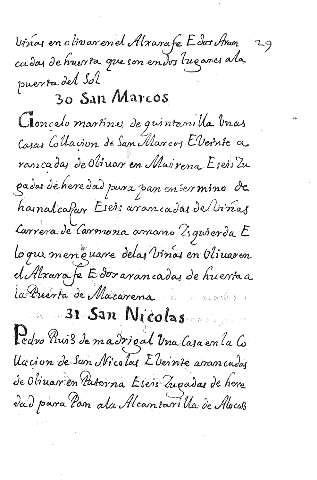 Viñas en olivar en el Alxarafe E dos aran 29
cadas de huerta que son en dos lugares a la
puerta del Sol
30 San Marcos
Goncelo martines de quintanilla Vnas
Casas Collacion de San Marcos E Veinte a
rancadas de Olivar en Mairena E seis Yu
gadas de heredad para pan en termino de
haznalcafar E seis arancadas de Viñas
Carrera de Carmona a mano Izquierda E
lo que menguare de las Viñas en Olivar en
el Alxarafe E dos arancadas de huerta a
la Puerta de Macarena
31 San Nicolas
Pedro Ruiz de madrigal Vna Casa en la Co
llacion de San Nicolas E Veinte arancadas
de Olivar en Paterna E seis Yugadas de here
dad para Pan a la Alcantarilla de